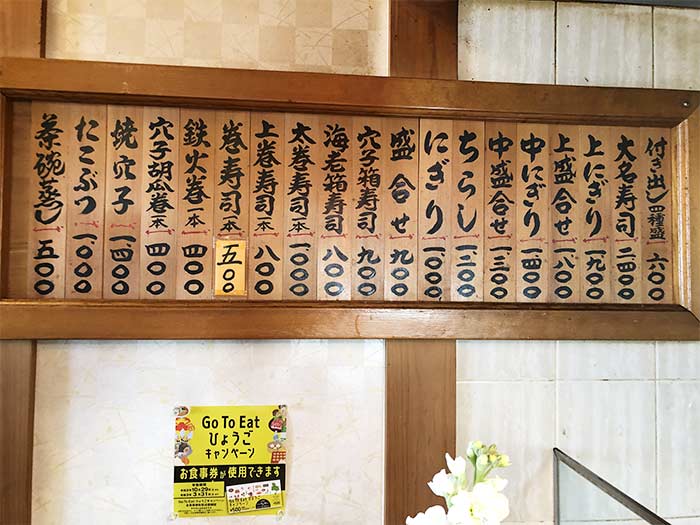 付き出し四種盛 六〇〇
大名寿司 二四〇〇
上にぎり 一九〇〇
上盛合せ 一八〇〇
中にぎり 一四〇〇
中盛合せ 一三〇〇
ちらし 一二〇〇
にぎり 一〇〇〇
盛合せ 九〇〇
穴子箱寿司 九〇〇
海老箱寿司 八〇〇
太巻寿司一本 一〇〇〇
上巻寿司一本 八〇〇
巻寿司一本 五〇〇
鉄火巻一本 四〇〇
穴子胡瓜巻一本 四〇〇
焼穴子 一四〇〇
たこぶつ 一〇〇〇
茶碗蒸し 五〇〇
Go To Eat
ひょうご
キャンペーン
お食事券が使用できます
10月29日
3月31日